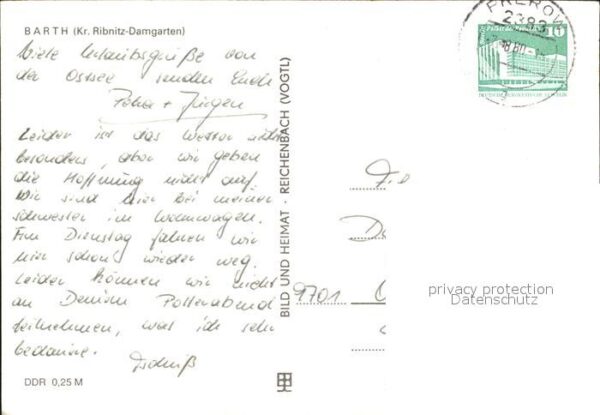 BARTH (Kr. Ribnitz-Damgarten)
Viele Urlaubsgrüße von
der Ostsee senden Euch
Petra + Jürgen
Leider ist das Wetter nicht
besonders, aber wir geben
die Hoffnung nicht auf.
Wir sind hier bei meiner
Schwester im Wohnwagen.
Am Dienstag fahren wir
hier schon wieder weg.
Leider können wir nicht
an Deinem Polterabend
teilnehmen, was ich sehr
bedauere.
Tschüß
DDR 0,25 M
BILD UND HEIMAT · REICHENBACH (VOGTL)
PREROW
2383
10
9701
privacy protection
Datenschutz